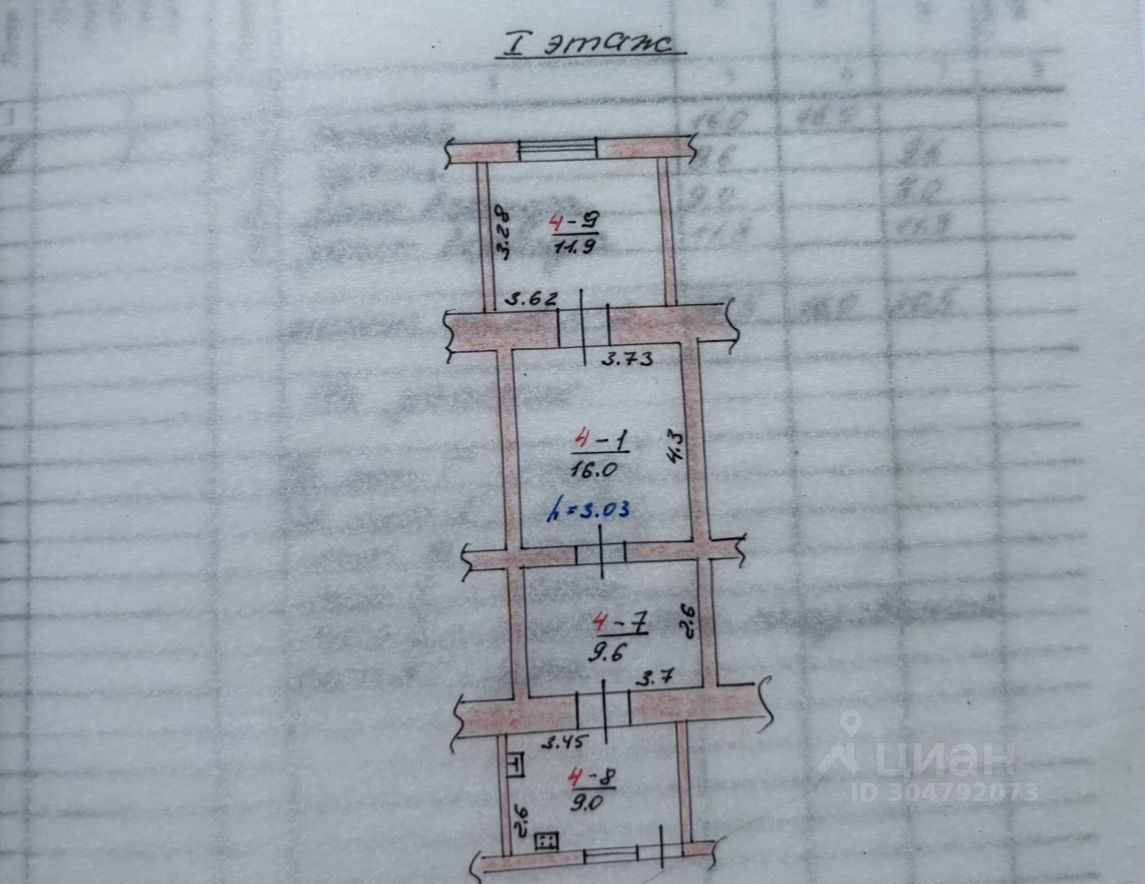 I этаж
4-9
11.9
3.28
3.62
3.73
4-1
16.0
4.3
h=3.03
4-7
9.6
2.6
3.7
3.45
4-8
9.0
2.6
циан
ID 304792073